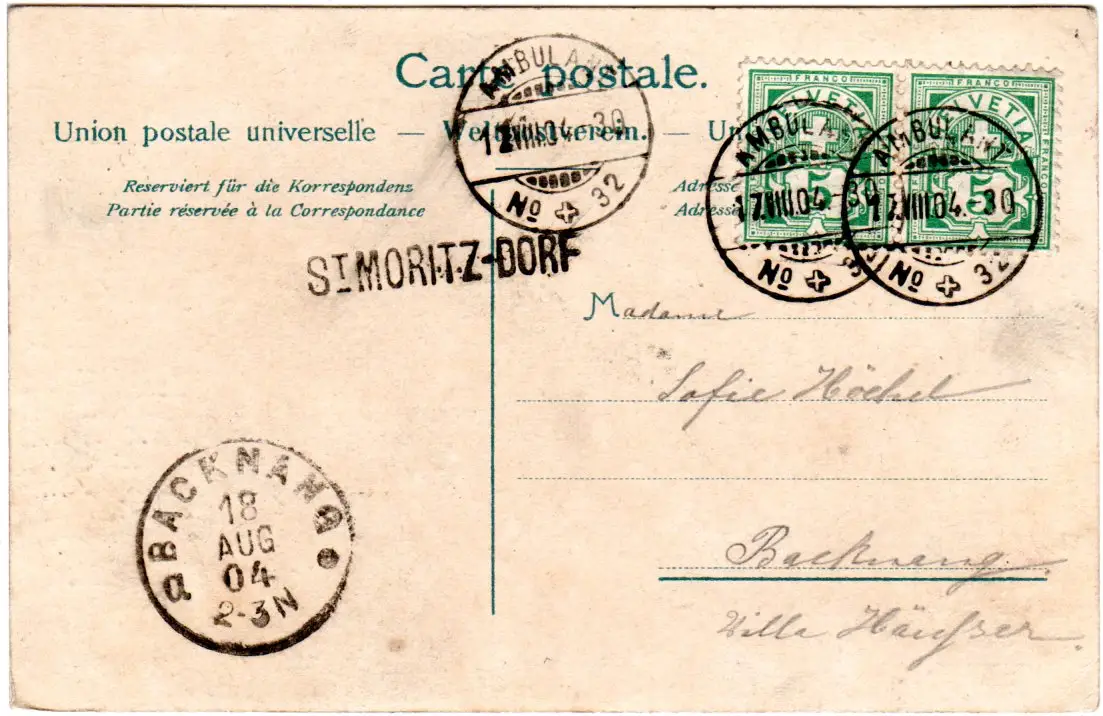 Carte postale.
Union postale universelle — Weltpostverein. — Un
Reserviert für die Korrespondenz
Partie réservée à la Correspondance
Adresse
Adresse
AMBULANT
17.VIII.04.–30
No 32
FRANCO
HELVETIA
5
AMBULANT
17.VIII.04.–30
No 32
FRANCO
HELVETIA
FRANCO
5
AMBULANT
17.VIII.04.–30
No 32
ST MORITZ-DORF
Madame
Sofie
Backnang
Villa Häußer
BACKNANG
18
AUG
04
2-3N
a